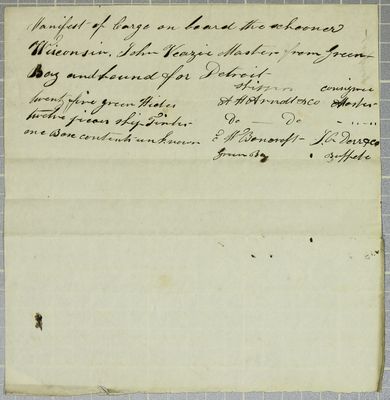 Manifest of Cargo on board the schooner
Wisconsin, John Veazie Master from Green
Bay and bound for Detroit
shippers consignee
twenty five green Hides A H Arndt & Co Master
twelve pieces ship Timber Do — Do " "
one Box contents unknown E W Boncroft J. C. Dorr & Co
Green Bay Buffalo